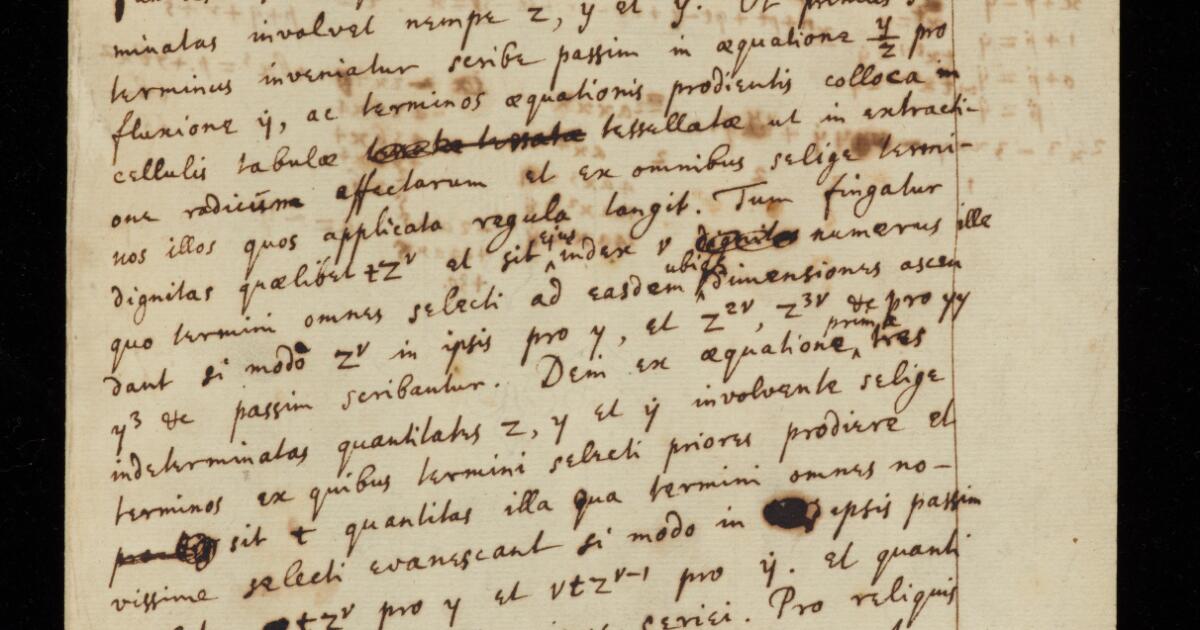 minatas involvet nempe z, y et ẏ. Ut primus
terminus inveniatur scribe passim in æquatione y/z pro
fluxione ẏ, ac terminos æquationis prodientis colloca in
cellulis tabulæ tessellatæ ut in extracti-
one radicum affectarum et ex omnibus selige termi-
nos illos quos applicata regula tangit. Tum fingatur
dignitas quælibet tz^ν et sit ejus index ν numerus ille
quo termini omnes selecti ad easdem ubique dimensiones ascen
dant si modo z^ν in ipsis pro y, et z^2ν, z^3ν &c pro yy
y^3 &c passim scribantur. Dein ex æquatione, primæ tres
indeterminatas quantitates z, y et ẏ involvente selige
terminos ex quibus termini selecti priores prodiere et
sit t quantitas illa qua termini omnes no-
vissime selecti evanescant si modo in ipsis passim
tz^ν pro y et νtz^ν-1 pro ẏ. et quanti
seriei. Pro reliquis